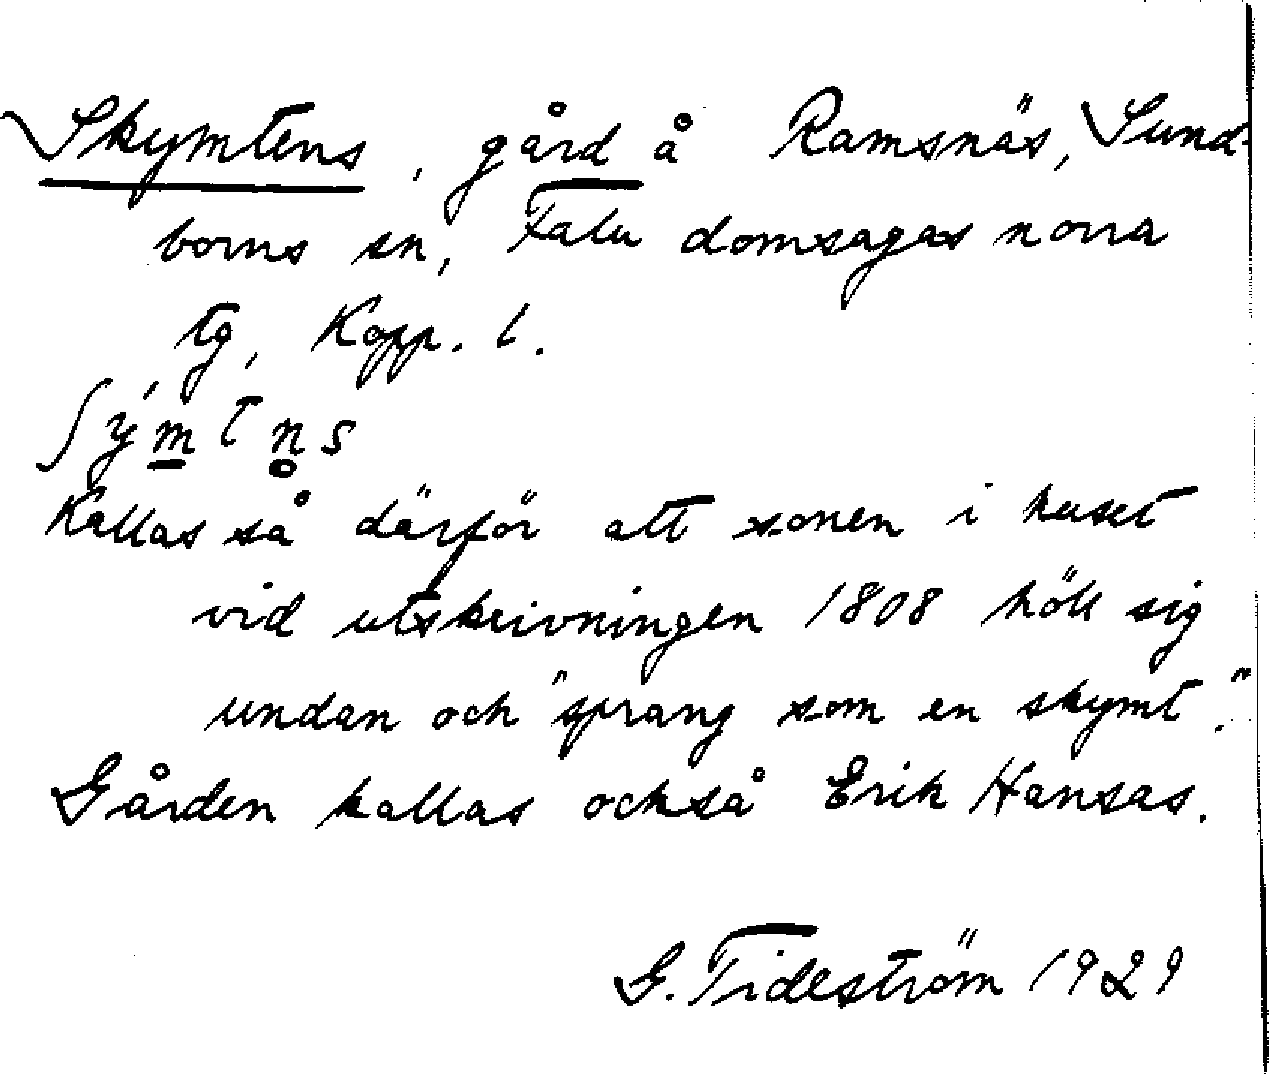 Skymtens, gård å Ramsnäs, Sund-
borns sn, Falu domsagas norra
tg, Kopp. l.
ʃý̱m̱tn̥s
Kallas så därför att sonen i huset
vid utskrivningen 1808 höll sig
undan och "sprang som en skymt".
Gården kallas också Erik Hansas.
G. Tideström 1929